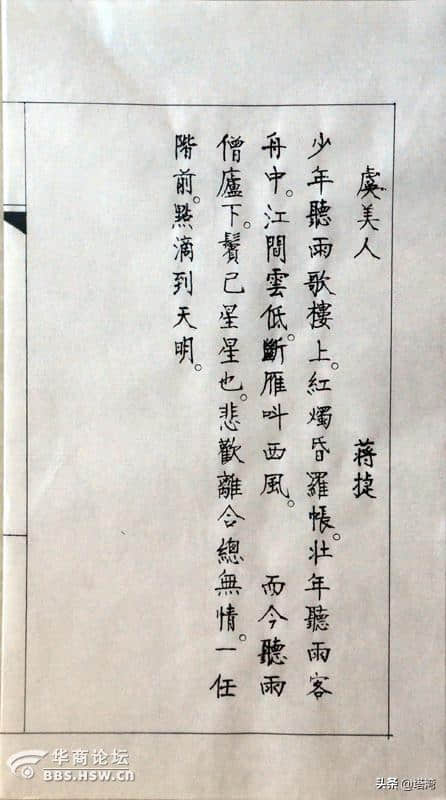 虞美人 蒋捷
少年聽雨歌樓上。紅燭昏羅帳。壮年聽雨客
舟中。江間雲低。斷雁叫西風。 而今聽雨
僧廬下。鬢已星星也。悲歡離合總無情。一任
階前。點滴到天明。
华商论坛
BBS.HSW.CN
头条 @塔湾